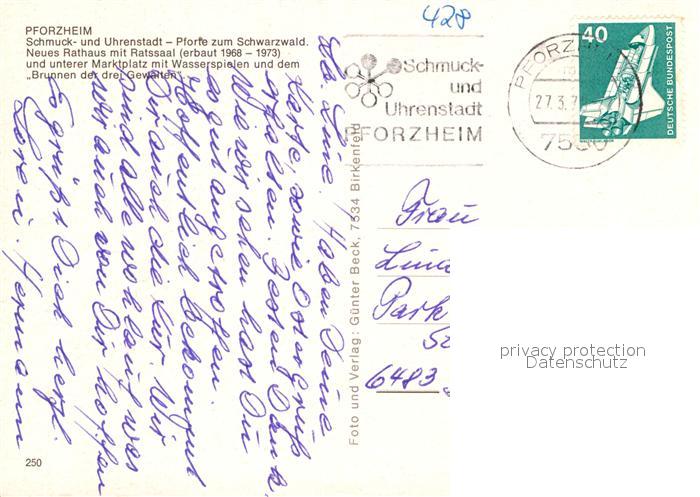 428
PFORZHEIM
Schmuck- und Uhrenstadt – Pforte zum Schwarzwald.
Neues Rathaus mit Ratssaal (erbaut 1968 – 1973)
und unterer Marktplatz mit Wasserspielen und dem
„Brunnen der drei Gewalten"
Schmuck-
und
Uhrenstadt
PFORZHEIM
PFORZHEIM
27.3.7
7530
40
DEUTSCHE BUNDESPOST
Lb. Line! Haben Deine
Karte, sowie Ostergruß
erhalten. Besten Dank.
Wie wir sehen hast Du
es gut angetroffen.
Hoffentlich bekommt
Dir auch die Kur. Wir
sind alle wohlauf was
wir auch von Dir hoffen
Es grüßt Dich herzl.
Hermann
Foto und Verlag: Günter Beck, 7534 Birkenfeld
Frau
Lina
Park
6483
privacy protection
Datenschutz
250